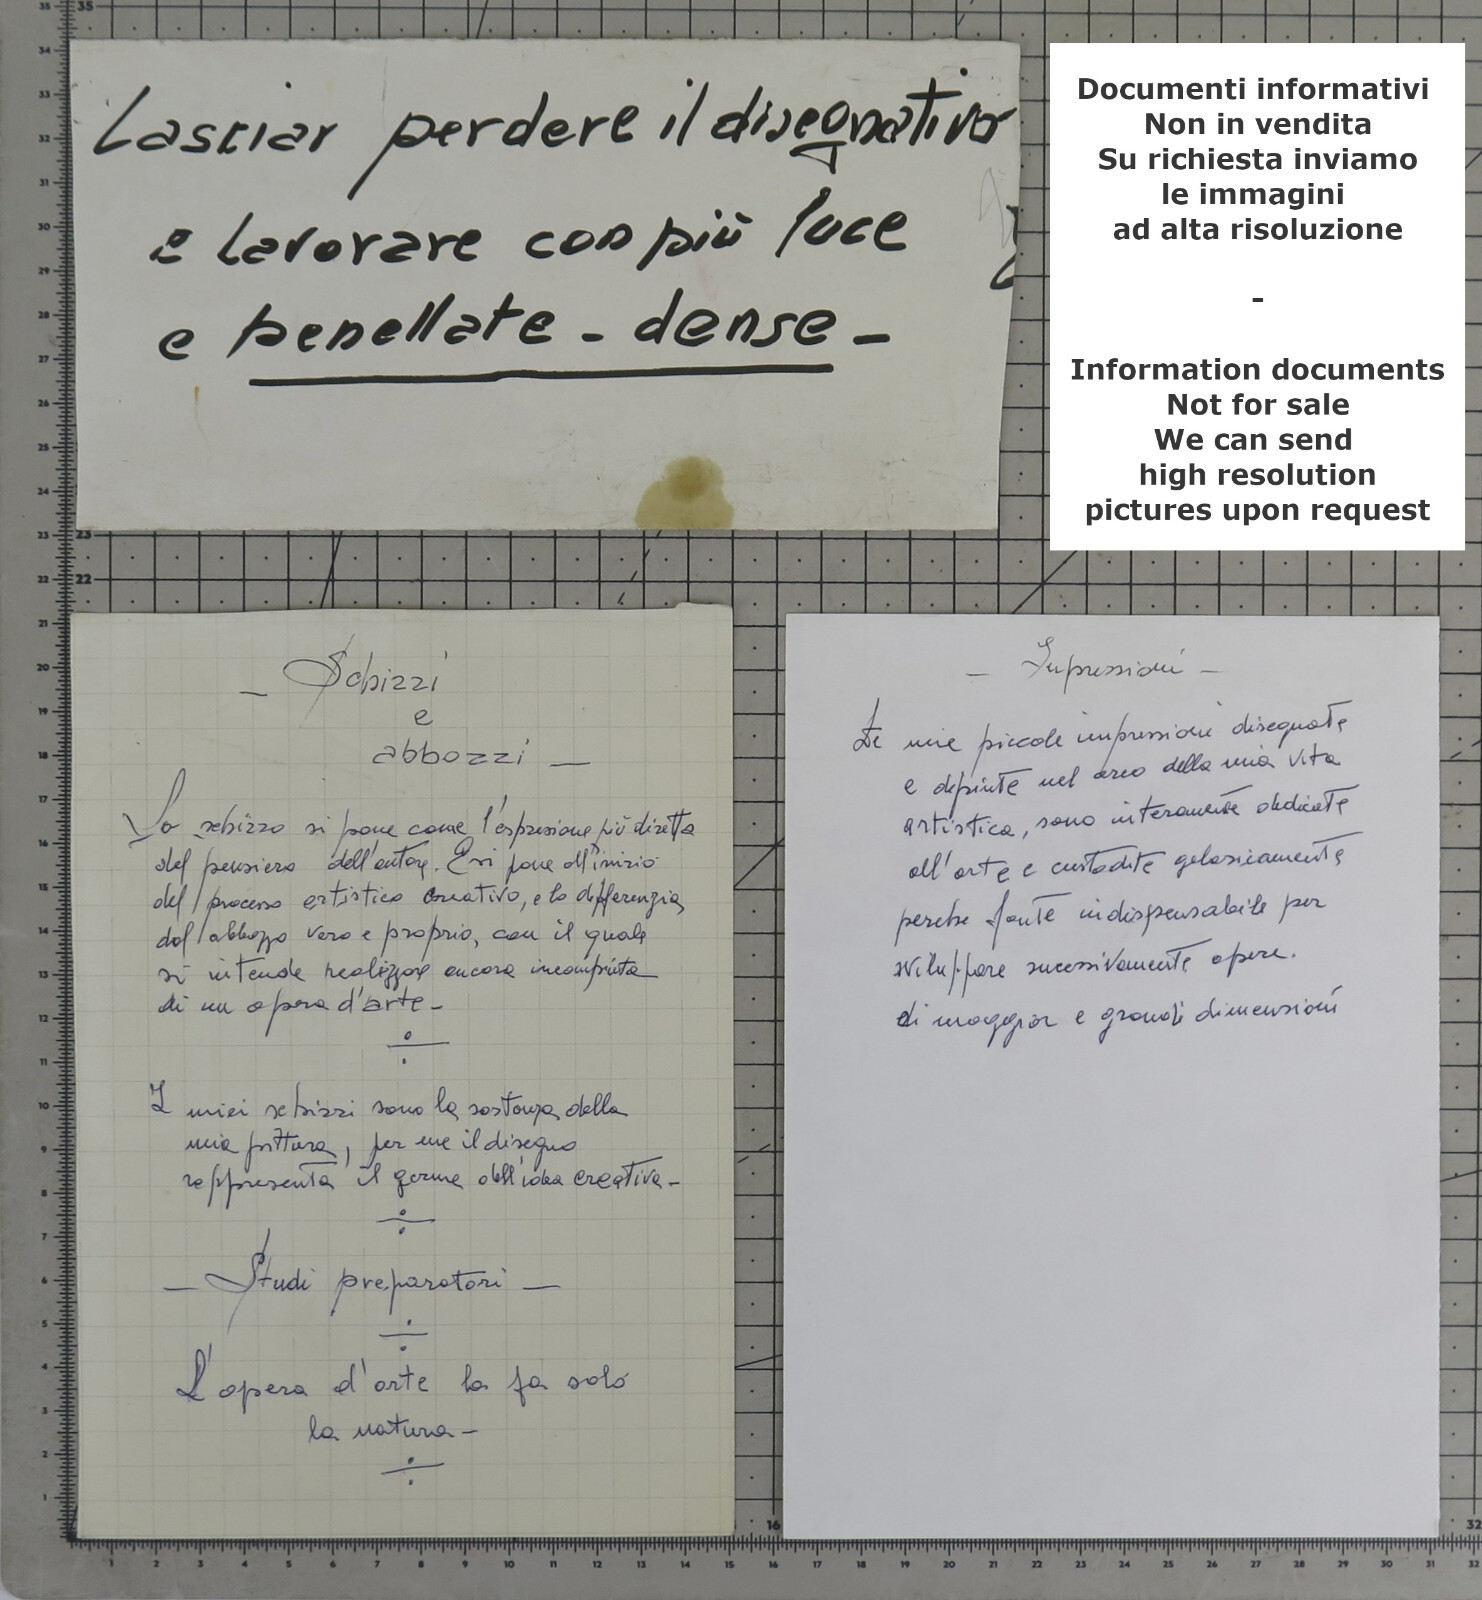 Lasciar perdere il disegnativo
e lavorare con più luce
e penellate - dense -
Documenti informativi
Non in vendita
Su richiesta inviamo
le immagini
ad alta risoluzione
-
Information documents
Not for sale
We can send
high resolution
pictures upon request
- Schizzi
e
abbozzi -
Lo schizzo si pone come l'espressione più diretta
del pensiero dell'autore. E si pone all'inizio
del processo artistico creativo, e lo differenzia
dal abbozzo vero e proprio, con il quale
si intende realizzare ancora incompiuta
di un opera d'arte -
I miei schizzi sono la sostanza della
mia pittura, per me il disegno
rappresenta il germe dell'idea creativa -
- Studi preparatori -
L'opera d'arte la fa solo
la natura -
- Impressioni -
Le mie piccole impressioni disegnate
e dipinte nel arco della mia vita
artistica, sono interamente dedicate
all'arte e custodite gelosicamente
perche fonte indispensabile per
sviluppare successivamente opere.
di maggior e grandi dimensioni